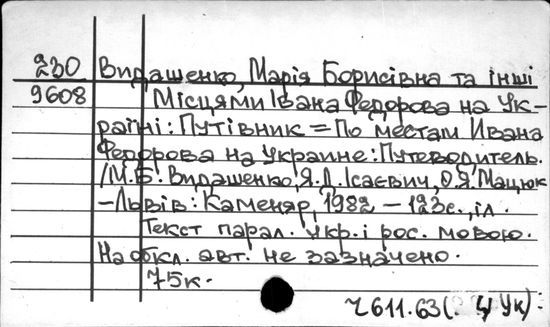 230 Видашенко, Марія Борисівна та інші
9608 Місцями Івана Федорова на Ук-
раїні: Путівник = По местам Ивана
Федорова на Украине: Путеводитель.
/М.Б. Видашенко, Я.Д. Ісаєвич, О.Я. Мацюк
– Львів: Каменяр, 1982 – 123с., іл.
Текст парал. укр. і рос. мовою.
На обкл. авт. не зазначено.
75к.
Z611.63( 4Ук).